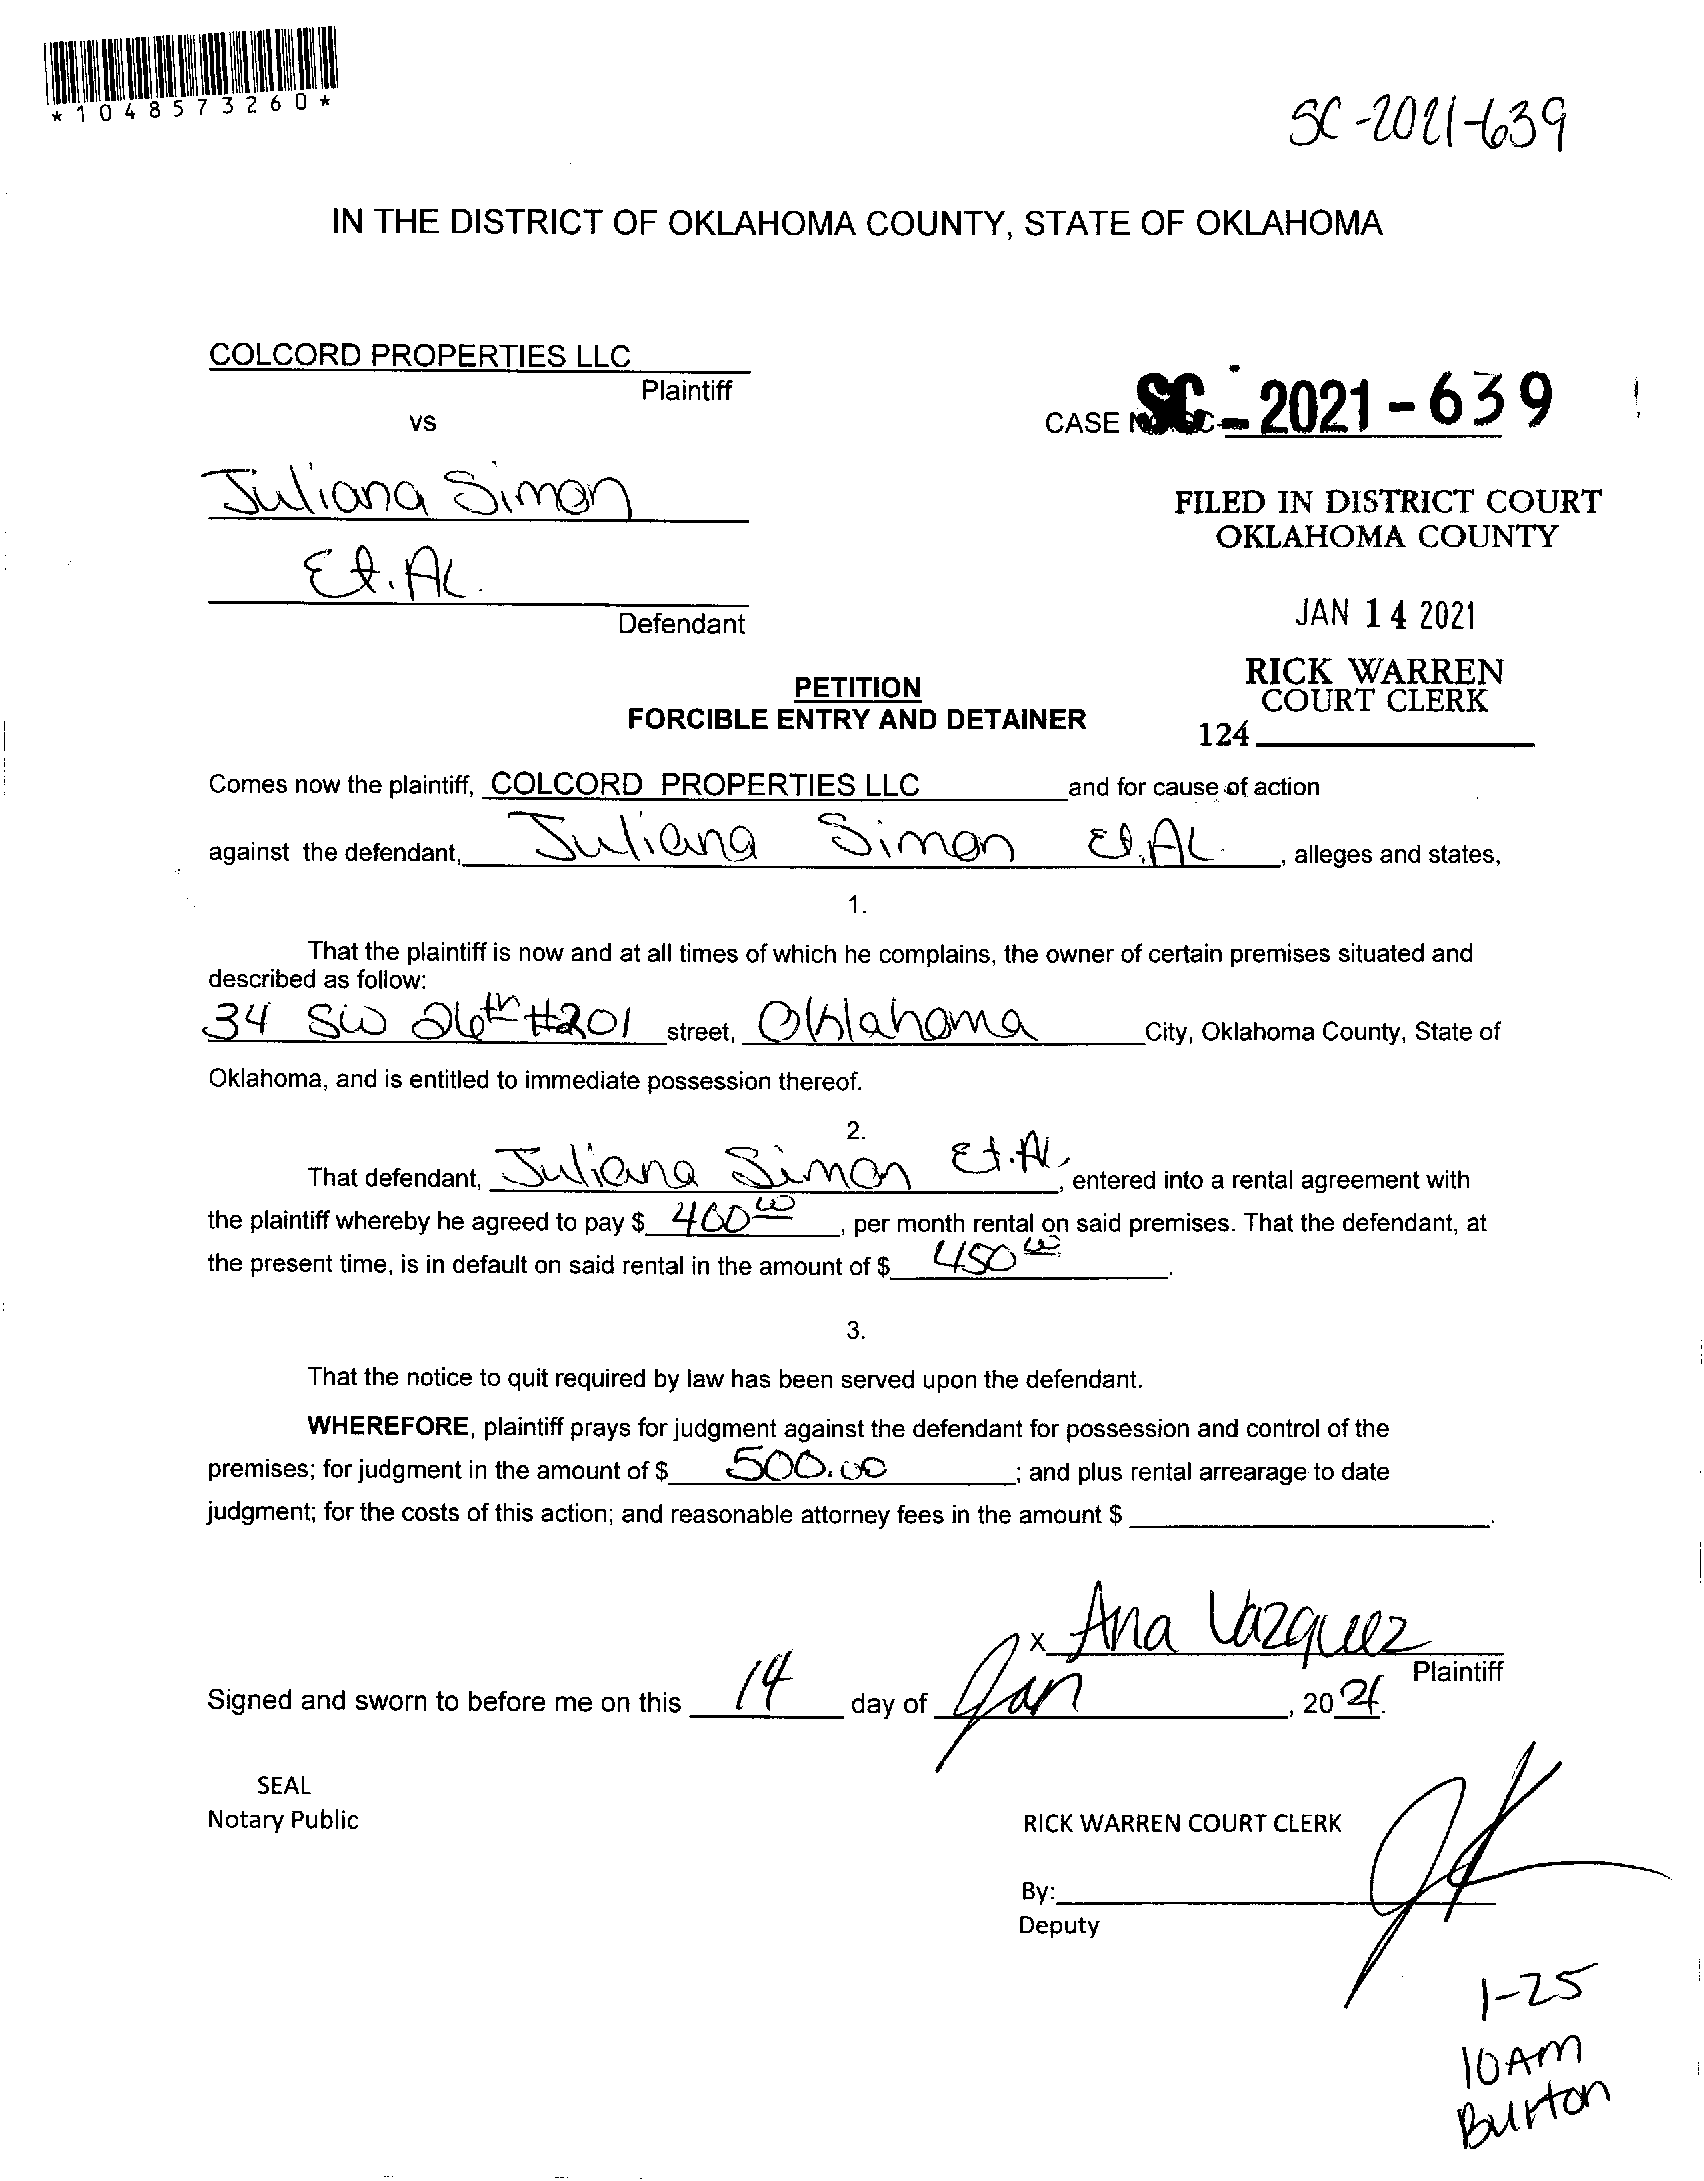 *1048573260*
SC-2021-639
IN THE DISTRICT OF OKLAHOMA COUNTY, STATE OF OKLAHOMA
COLCORD PROPERTIES LLC
Plaintiff
vs
CASE NO. SC-
SC - 2021 - 639
Juliana Simon
Et. AL.
Defendant
FILED IN DISTRICT COURT
OKLAHOMA COUNTY
JAN 14 2021
RICK WARREN
COURT CLERK
124
PETITION
FORCIBLE ENTRY AND DETAINER
Comes now the plaintiff, COLCORD PROPERTIES LLC and for cause of action
against the defendant, Juliana Simon Et. AL. , alleges and states,
1.
That the plaintiff is now and at all times of which he complains, the owner of certain premises situated and
described as follow:
34 SW 26th #201 street, Oklahoma City, Oklahoma County, State of
Oklahoma, and is entitled to immediate possession thereof.
2.
That defendant, Juliana Simon Et. AL. , entered into a rental agreement with
the plaintiff whereby he agreed to pay $ 400 00 , per month rental on said premises. That the defendant, at
the present time, is in default on said rental in the amount of $ 450 00 .
3.
That the notice to quit required by law has been served upon the defendant.
WHEREFORE, plaintiff prays for judgment against the defendant for possession and control of the
premises; for judgment in the amount of $ 500.00 ; and plus rental arrearage to date
judgment; for the costs of this action; and reasonable attorney fees in the amount $ .
x Ana Vazquez
Plaintiff
Signed and sworn to before me on this 14 day of Jan , 2021.
SEAL
Notary Public
RICK WARREN COURT CLERK
By:
Deputy
1-25
10AM
Burton